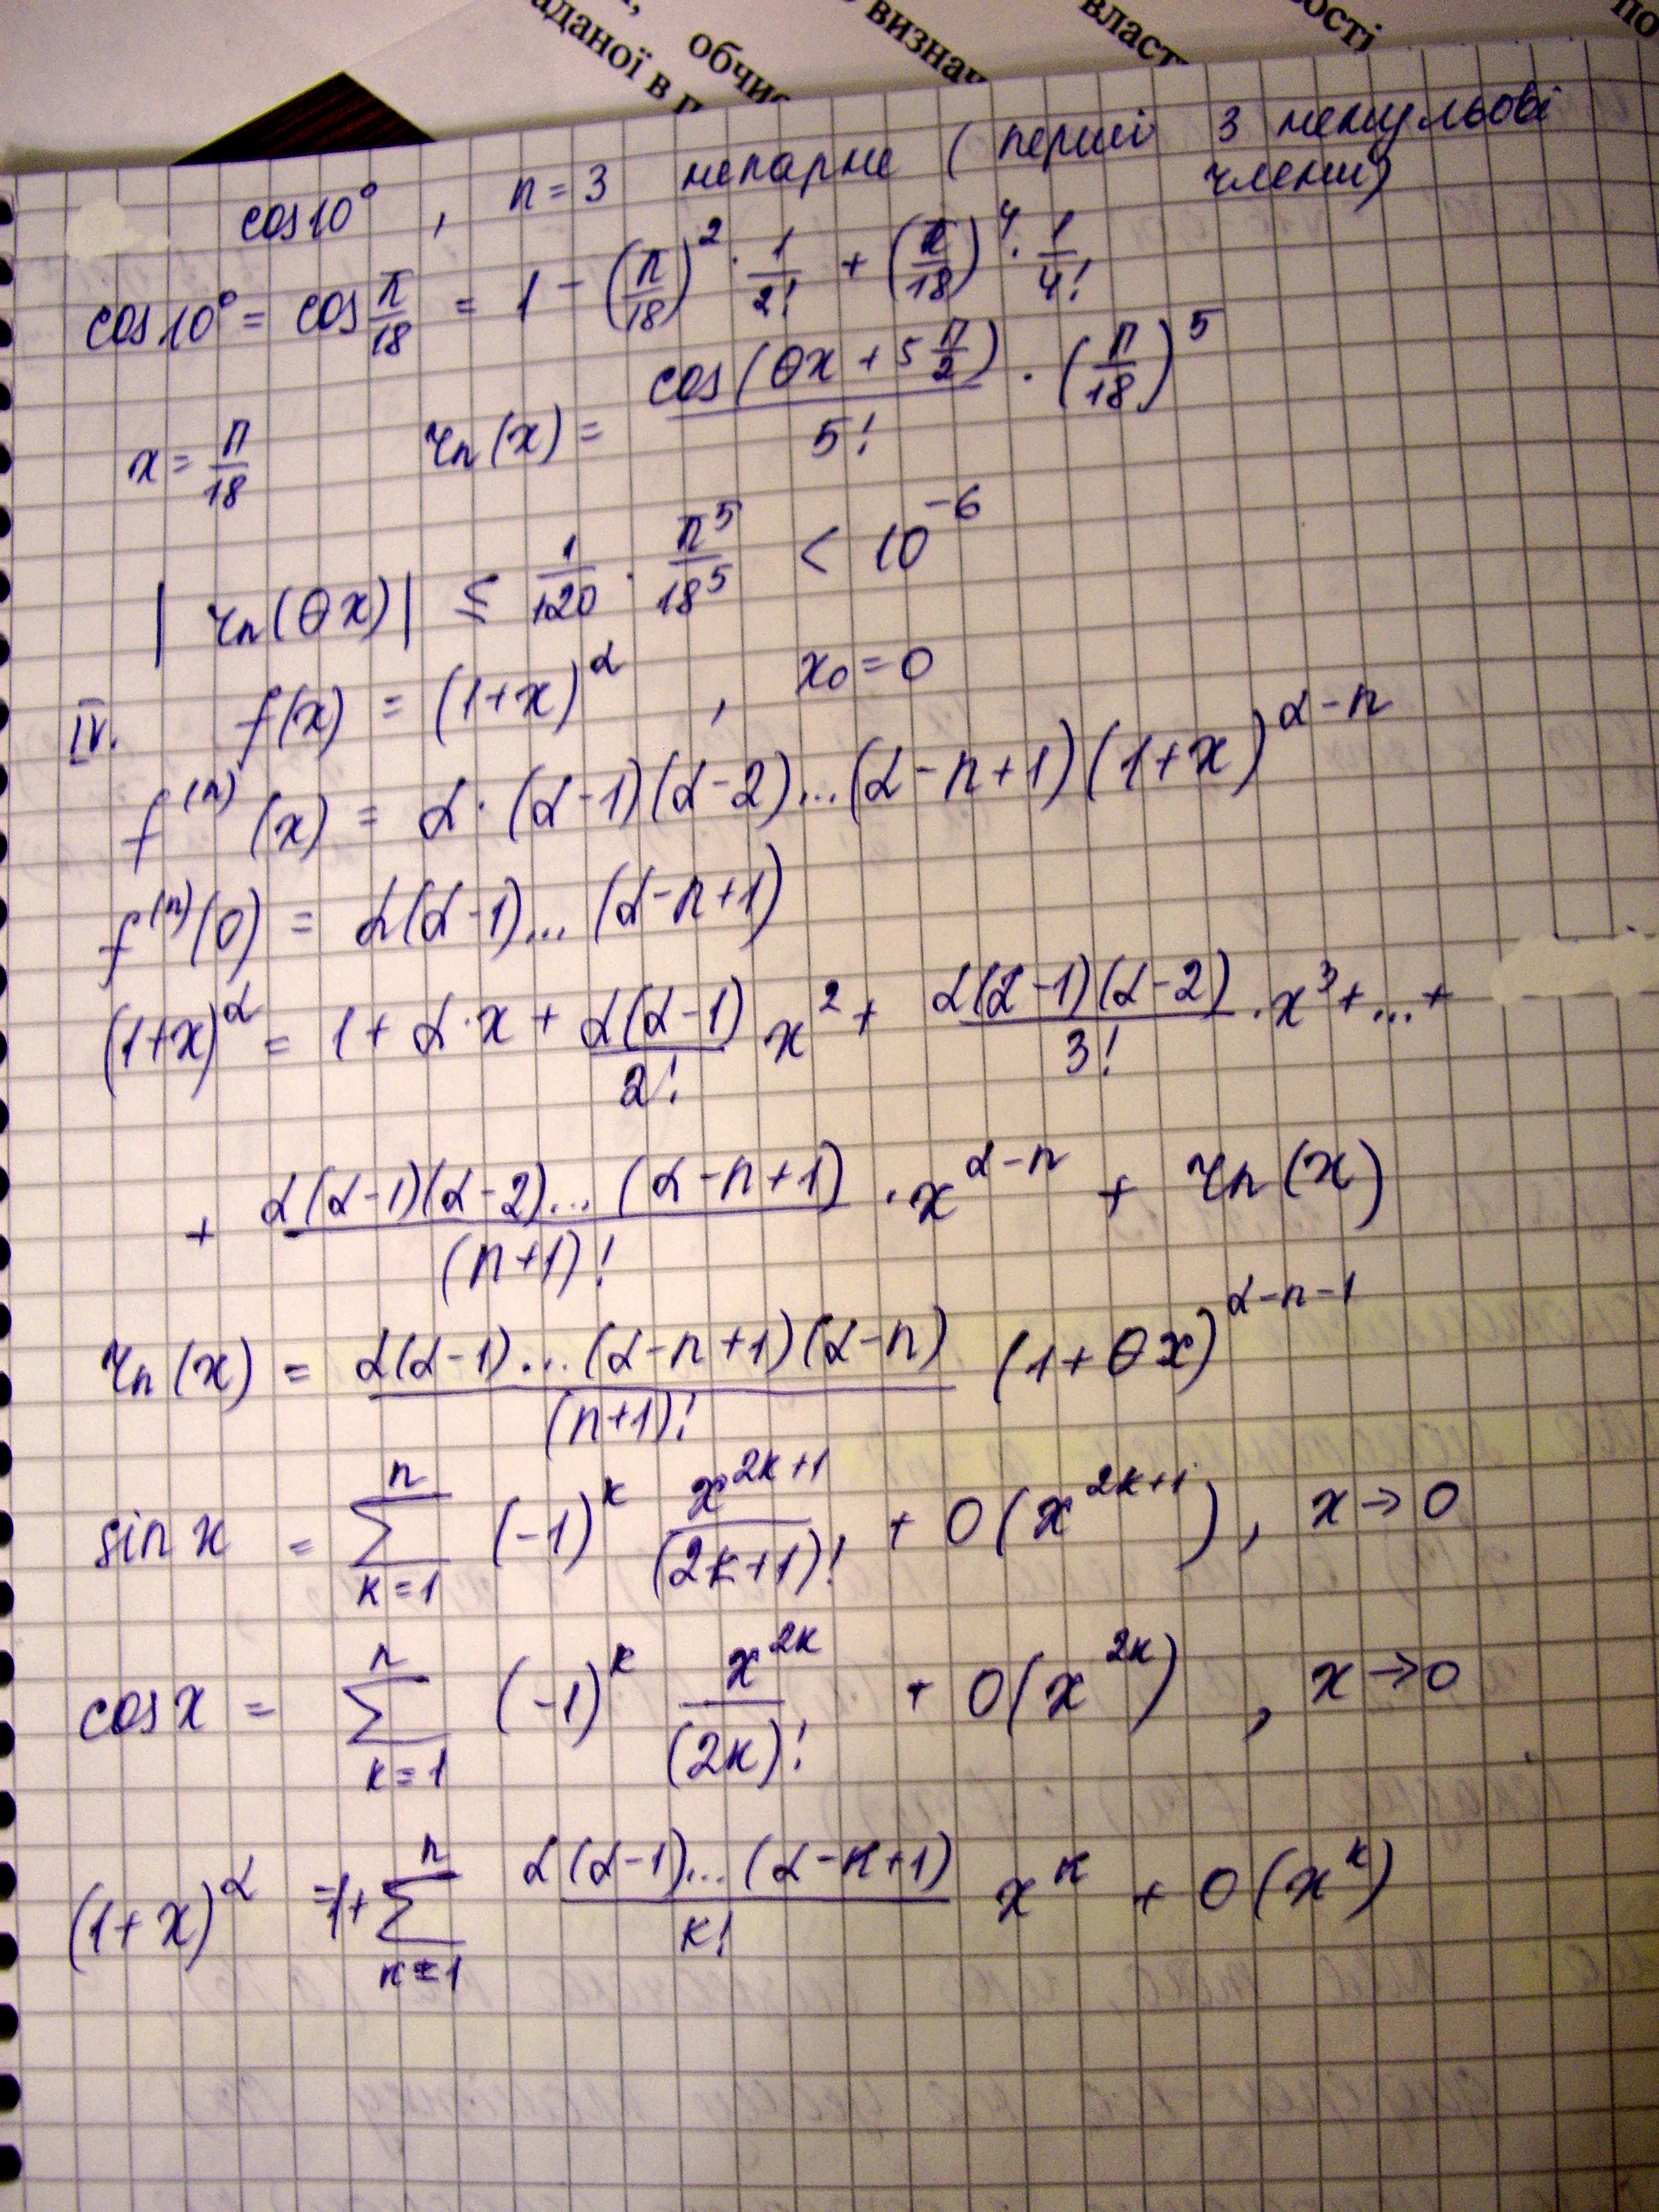 , обчис
аданої в п
визнан
власт
ості
по
cos10° , n=3 непарне (перші 3 ненульові
члени)
cos10° = cos π/18 = 1 - (π/18)^2 · 1/2! + (π/18)^4 · 1/4!
x = π/18 r_n(x) = cos(θx + 5 π/2)/5! · (π/18)^5
|r_n(θx)| ≤ 1/120 · π^5/18^5 < 10^-6
IV. f(x) = (1+x)^α , x_0 = 0
f^(n)(x) = α·(α-1)(α-2)...(α-n+1)(1+x)^(α-n)
f^(n)(0) = α(α-1)...(α-n+1)
(1+x)^α = 1 + α·x + α(α-1)/2! x^2 + α(α-1)(α-2)/3! · x^3 + ... +
+ α(α-1)(α-2)...(α-n+1)/(n+1)! · x^(α-n) + r_n(x)
r_n(x) = α(α-1)...(α-n+1)(α-n)/(n+1)! (1+θx)^(α-n-1)
sin x = ∑_{k=1}^{n} (-1)^k x^(2k+1)/(2k+1)! + O(x^(2k+1)), x→0
cos x = ∑_{k=1}^{n} (-1)^k x^(2k)/(2k)! + O(x^(2k)) , x→0
(1+x)^α = 1+ ∑_{k=1}^{n} α(α-1)...(α-k+1)/k! x^k + O(x^k)